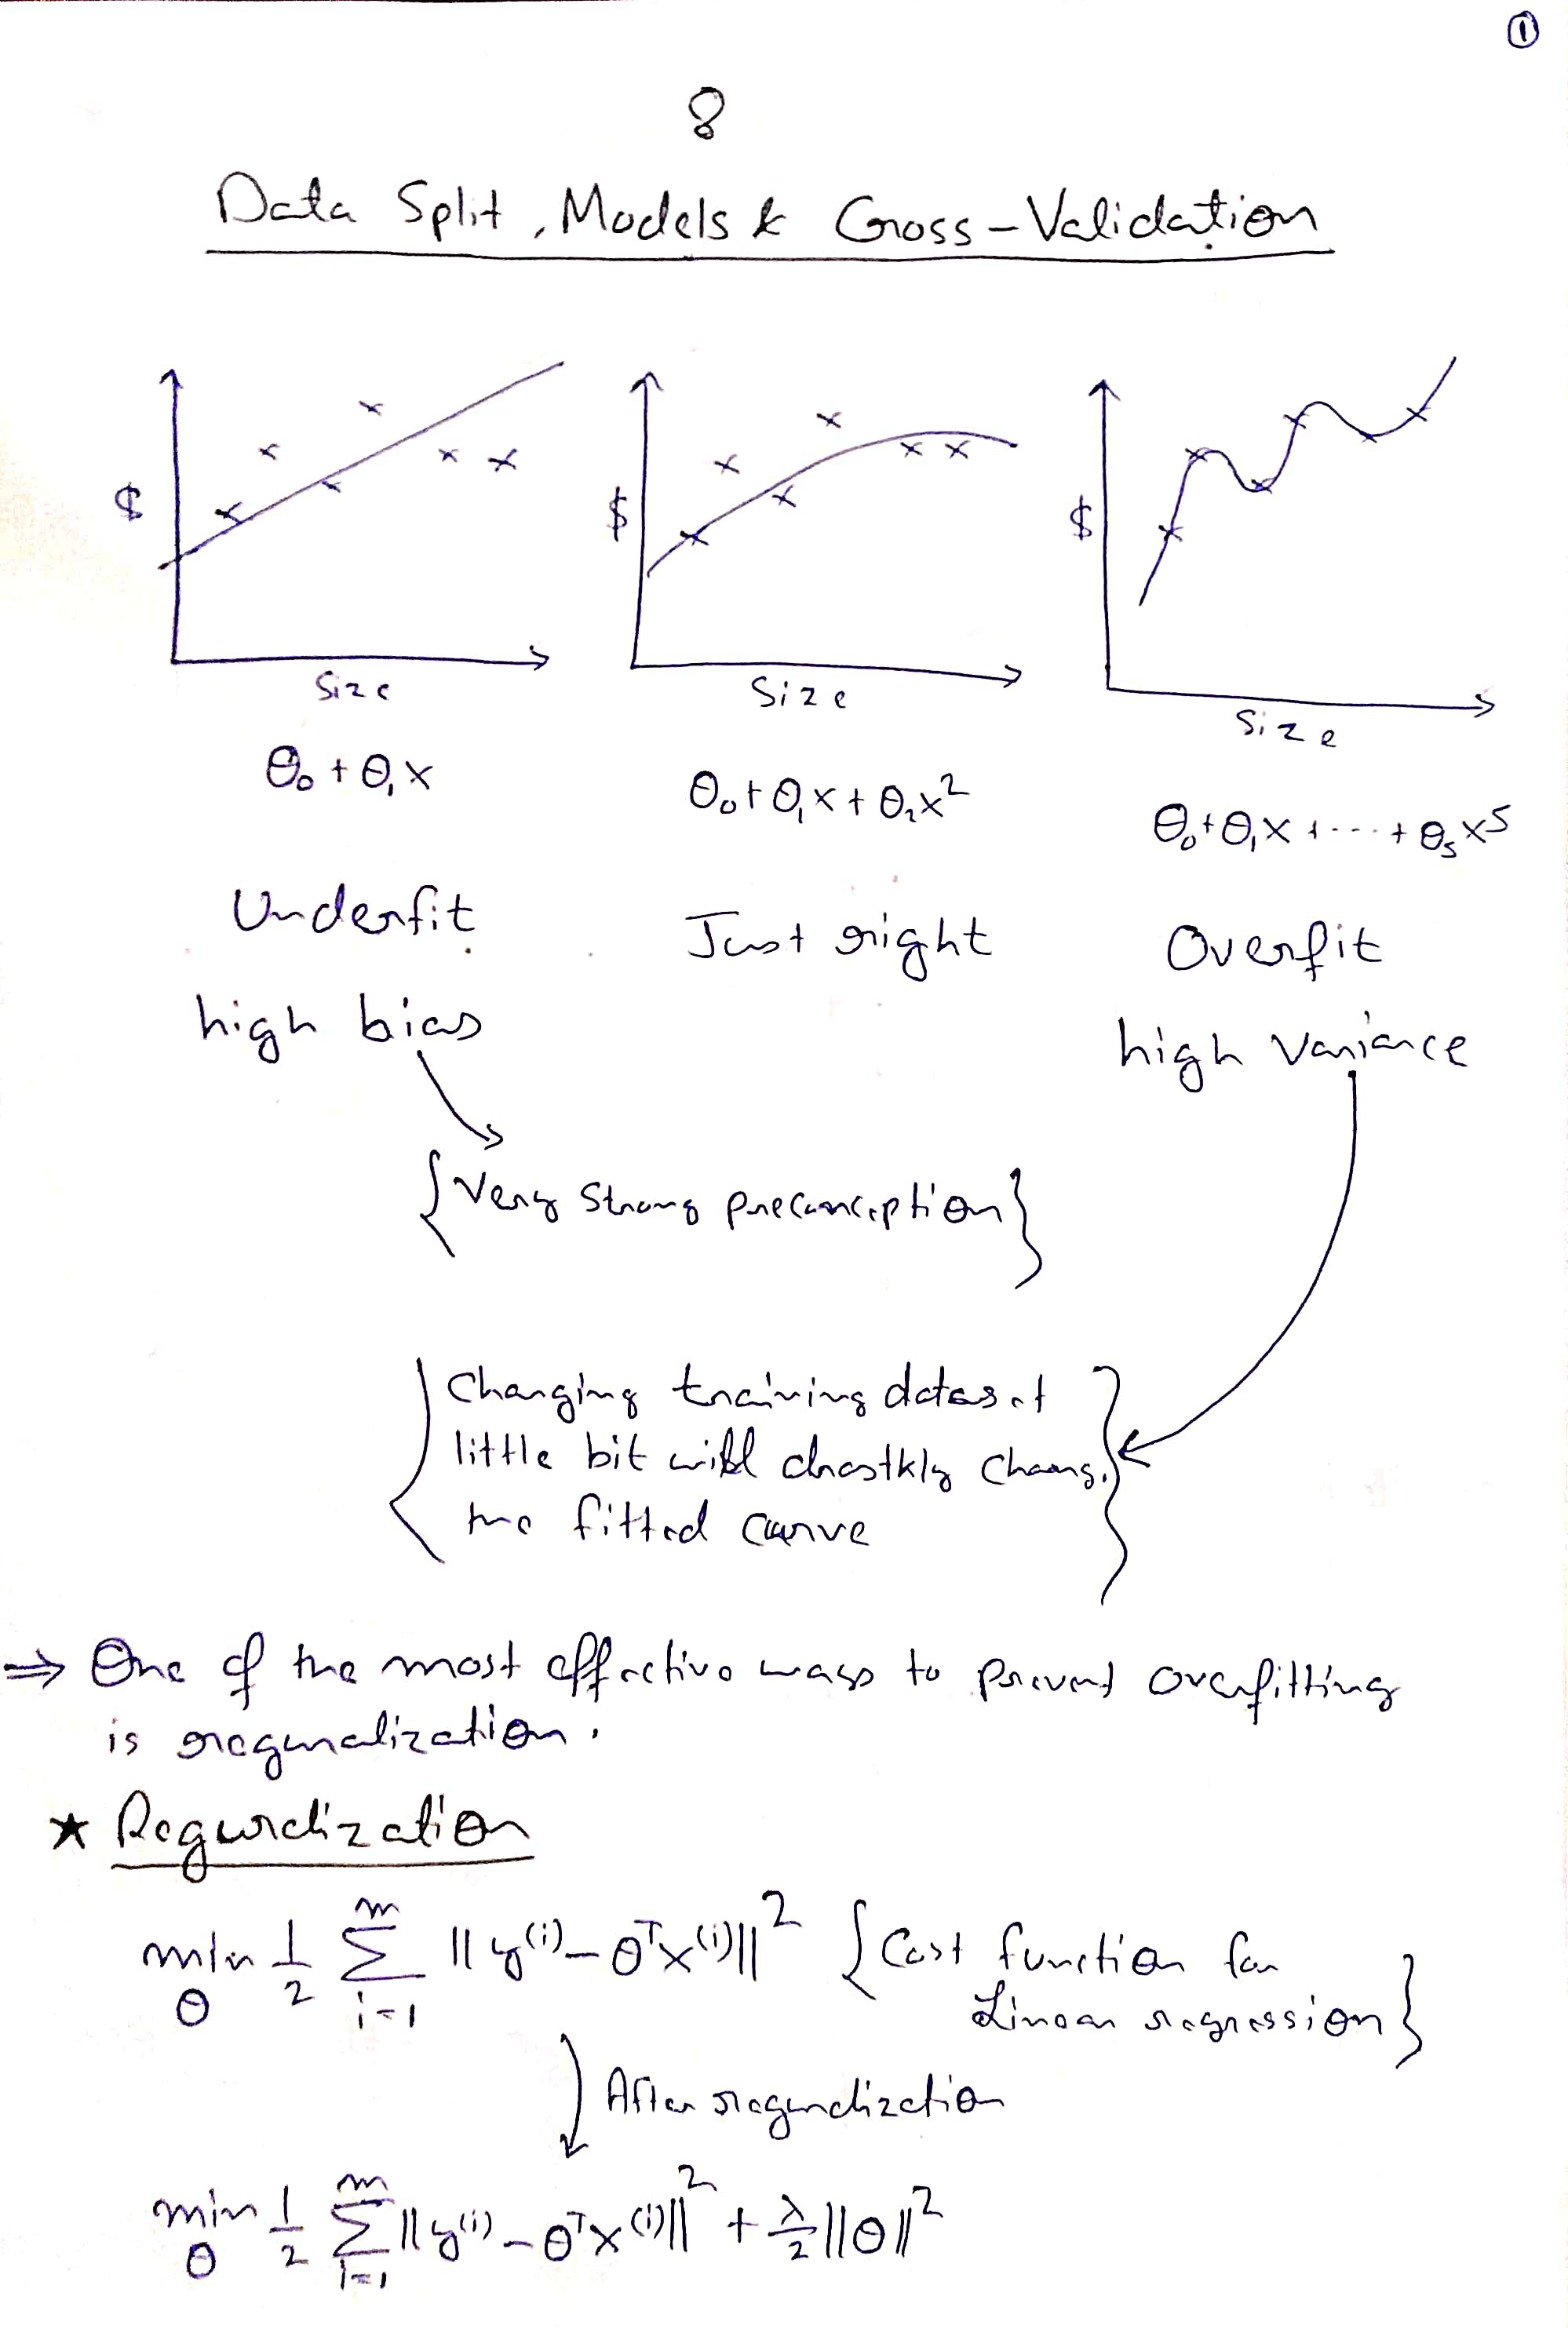 ①
8
Data Split, Models & Cross-Validation
$ $ $
Size Size Size
θ₀ + θ₁x θ₀ + θ₁x + θ₂x² θ₀ + θ₁x + .... + θ₅x⁵
Underfit Just right Overfit
high bias high variance
{Very strong preconception}
{Changing training dataset
little bit will drastkly change
the fitted curve}
⇒ One of the most effective ways to prevent overfitting
is regularization.
★ Regularization
min_θ 1/2 Σ_{i=1}^{m} ||y⁽ⁱ⁾ − θᵀx⁽ⁱ⁾||² {Cost function for
Linear regression}
After regularization
min_θ 1/2 Σ_{i=1}^{m} ||y⁽ⁱ⁾ − θᵀx⁽ⁱ⁾||² + λ/2 ||θ||²